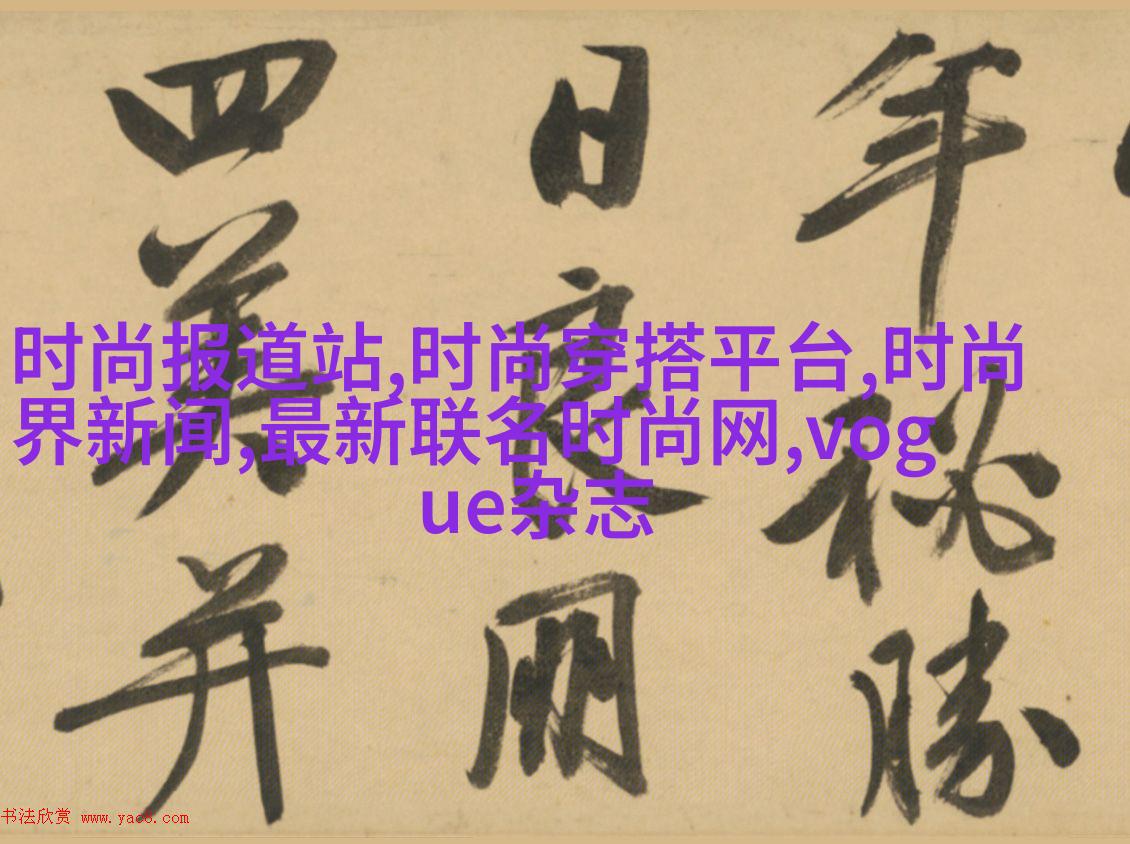 年秘勝
日良朋
四美并
时尚报道站,时尚穿搭平台,时尚
界新闻,最新联名时尚网,vog
ue杂志
书法欣赏 www.yac8.com